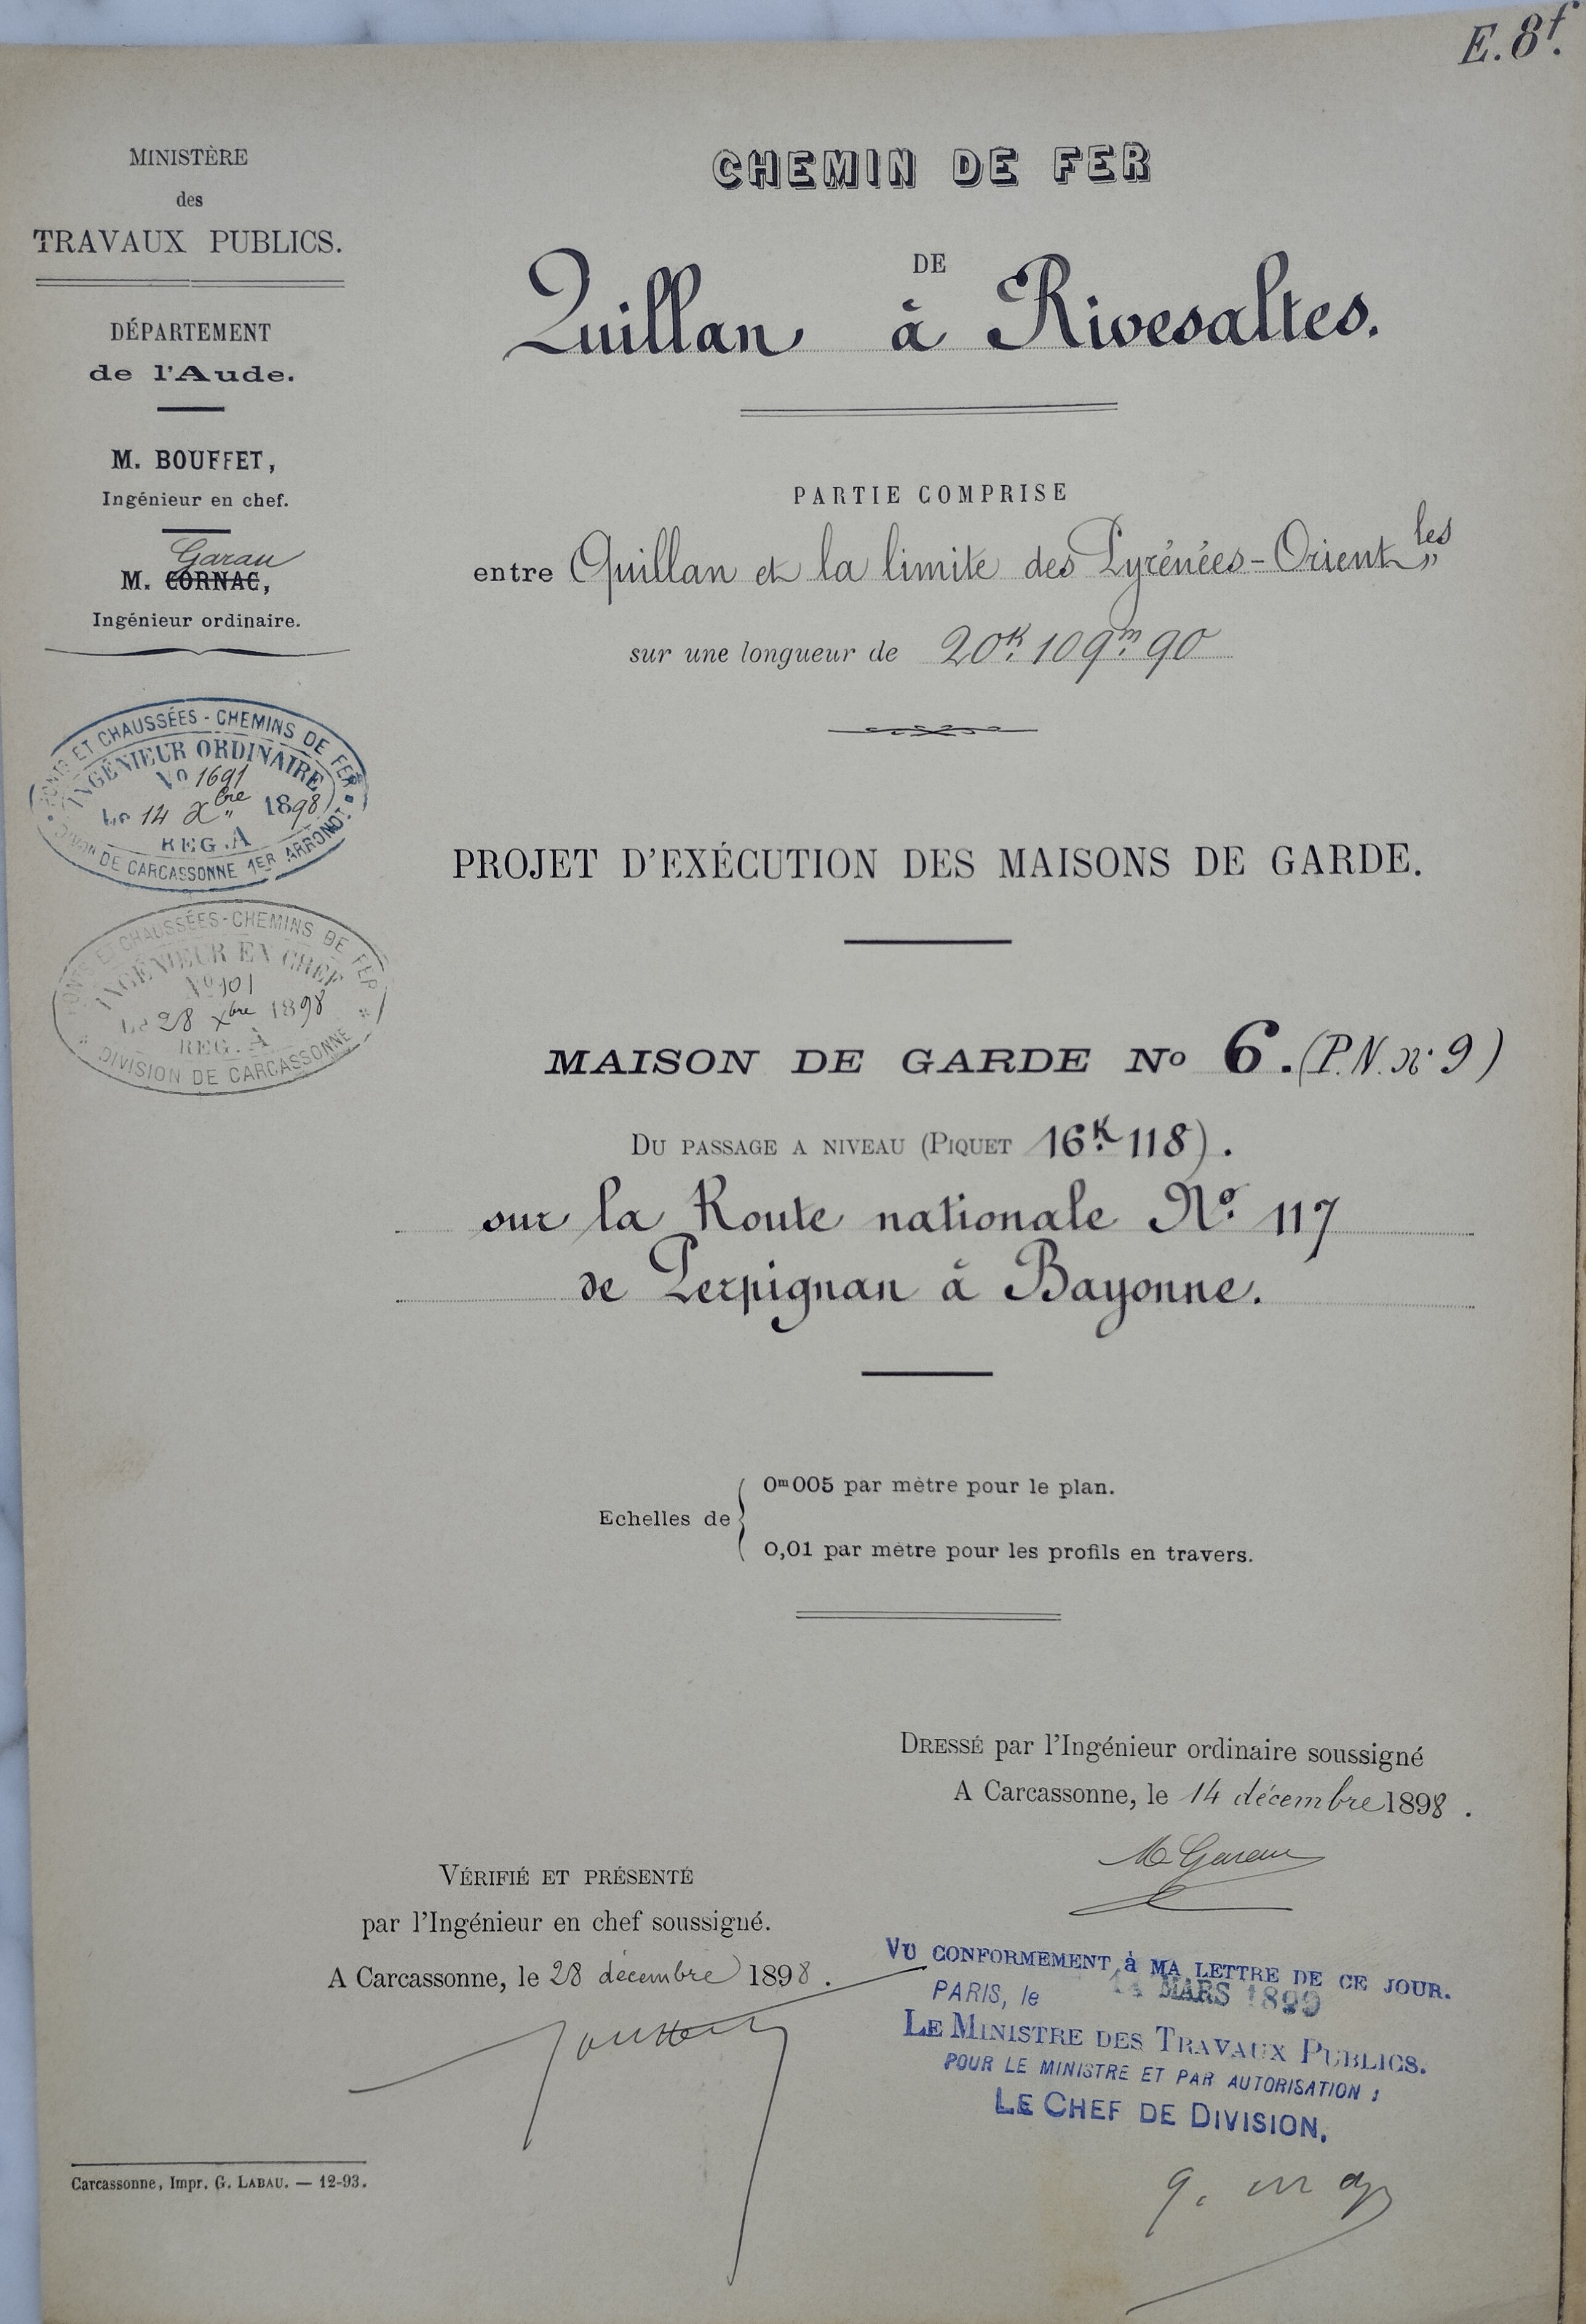 E. 8f.
MINISTÈRE
des
TRAVAUX PUBLICS.
DÉPARTEMENT
de l'Aude.
M. BOUFFET,
Ingénieur en chef.
Garau
M. CORNAC,
Ingénieur ordinaire.
PONTS ET CHAUSSÉES - CHEMINS DE FER
INGÉNIEUR ORDINAIRE
No 1691
Le 14 Xbre 1898
REG. A
DIVON DE CARCASSONNE 1ER ARRONDT
PONTS ET CHAUSSÉES - CHEMINS DE FER
INGÉNIEUR EN CHEF
No 101
Le 28 Xbre 1898
REG. A
DIVISION DE CARCASSONNE
CHEMIN DE FER
DE
Quillan à Rivesaltes.
PARTIE COMPRISE
entre Quillan et la limite des Pyrénées-Orientles
sur une longueur de 20k. 109m. 90
PROJET D'EXÉCUTION DES MAISONS DE GARDE.
MAISON DE GARDE No 6. (P.N. no 9)
DU PASSAGE A NIVEAU (PIQUET 16k. 118).
sur la Route nationale No. 117
de Perpignan à Bayonne.
Echelles de
0m005 par mètre pour le plan.
0,01 par mètre pour les profils en travers.
DRESSÉ par l'Ingénieur ordinaire soussigné
A Carcassonne, le 14 décembre 1898.
M Garau
VÉRIFIÉ ET PRÉSENTÉ
par l'Ingénieur en chef soussigné.
A Carcassonne, le 28 décembre 1898.
VU CONFORMEMENT à MA LETTRE DE CE JOUR.
PARIS, le 14 MARS 1899
LE MINISTRE DES TRAVAUX PUBLICS.
POUR LE MINISTRE ET PAR AUTORISATION :
LE CHEF DE DIVISION,
Carcassonne, Impr. G. LABAU. — 12-93.